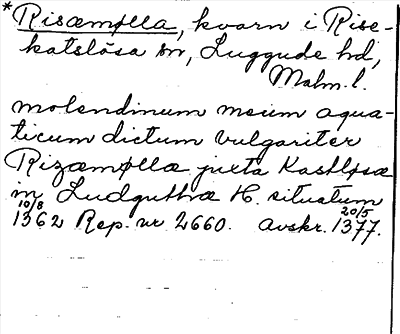 *Risæmølla, kvarn i Rise-
katslösa sn, Luggude hd,
Malm. l.
molendinum meum aqua-
ticum dictum vulgariter
Rizæmøllæ juxta Kastløsæ
in Ludguthræ H. situatum
10/8 1362 Rep. nr 2660. Avskr. 20/5 1377.